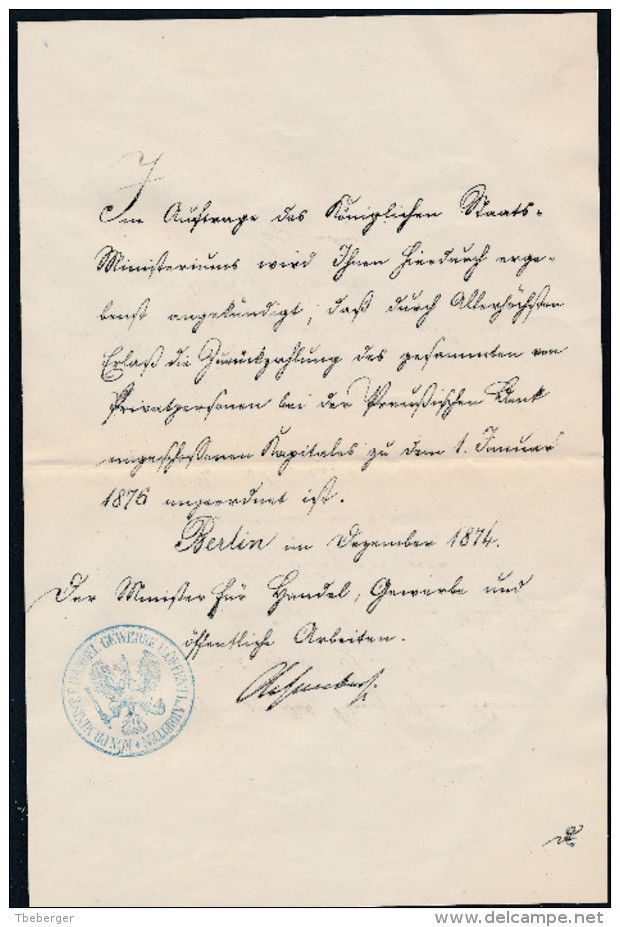 Im Auftrage des Königlichen Staats-
Ministeriums wird Ihnen hierdurch erge-
benst angekündigt, daß durch Allerhöchsten
Erlaß die Zurückzahlung des gesammten von
Privatpersonen bei der Preußischen Bank
eingeschossenen Kapitales zu dem 1. Januar
1876 angeordnet ist.
Berlin im Dezember 1874.
Der Minister für Handel, Gewerbe und
öffentliche Arbeiten.
Achenbach.
KÖN. PR. MINIST. F. HANDEL GEWERBE U. ÖFFENTL. ARBEITEN
Tbeberger
delcampe.net